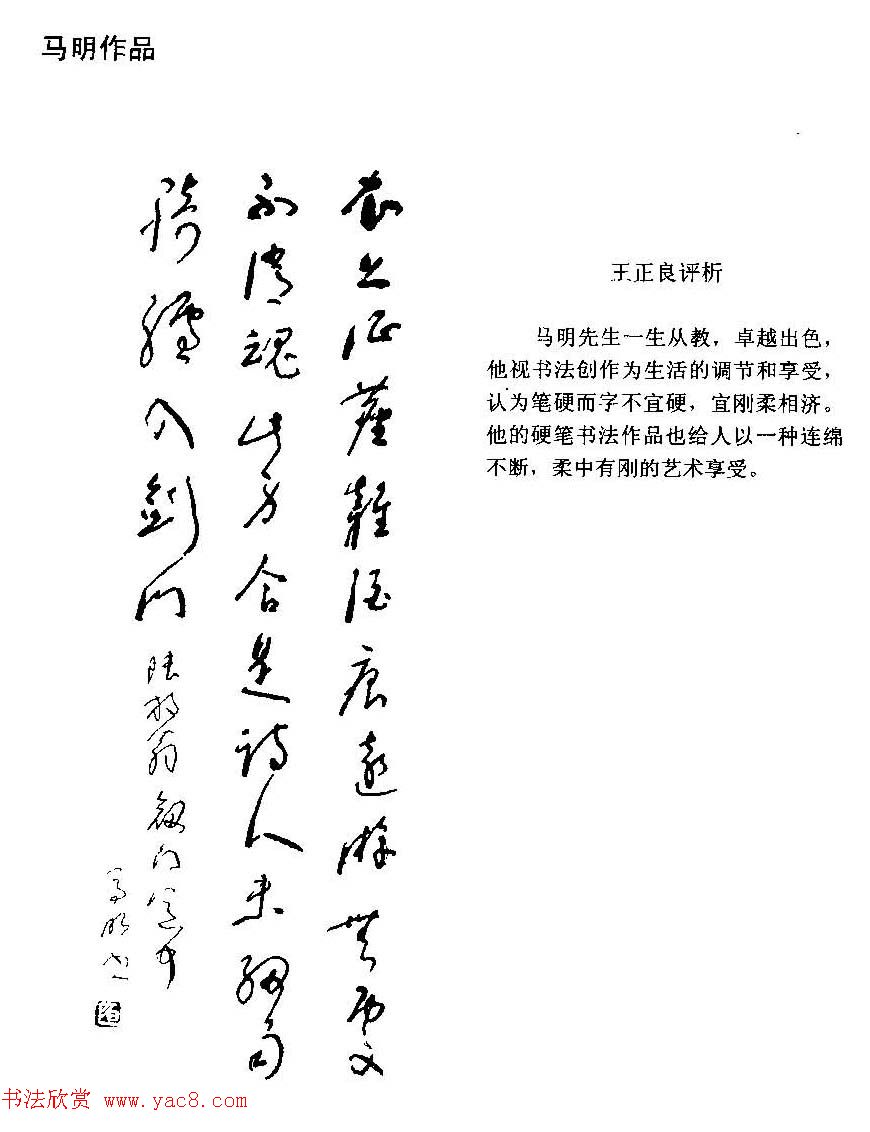 马明作品
衣上征塵雜酒痕遠游無處
不消魂此身合是詩人未細雨
騎驢入劍門
陸放翁劍門道中
馬明書
王正良评析
马明先生一生从教，卓越出色，
他视书法创作为生活的调节和享受，
认为笔硬而字不宜硬，宜刚柔相济。
他的硬笔书法作品也给人以一种连绵
不断，柔中有刚的艺术享受。
书法欣赏 www.yac8.com